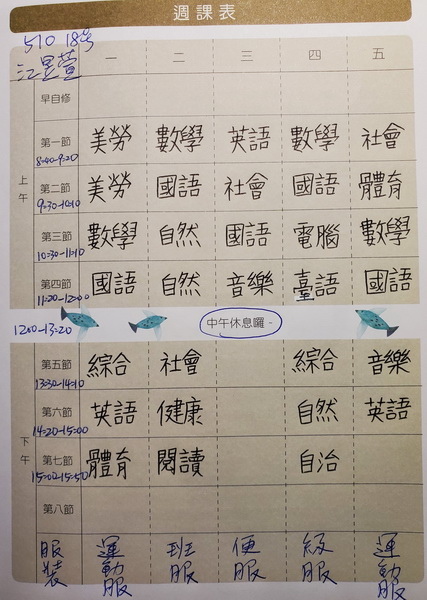 週課表
510 18号
江昱萱
一 二 三 四 五
早自修
上午
第一節 美勞 數學 英語 數學 社會
8:40-9:20
第二節 美勞 國語 社會 國語 體育
9:30-10:10
第三節 數學 自然 國語 電腦 數學
10:30-11:10
第四節 國語 自然 音樂 臺語 國語
11:20-12:00
12:00-13:20 中午休息囉~
下午
第五節 綜合 社會 綜合 音樂
13:30-14:10
第六節 英語 健康 自然 英語
14:20-15:00
第七節 體育 閱讀 自治
15:02-15:50
第八節
服裝 運動服 班服 便服 級服 運動服